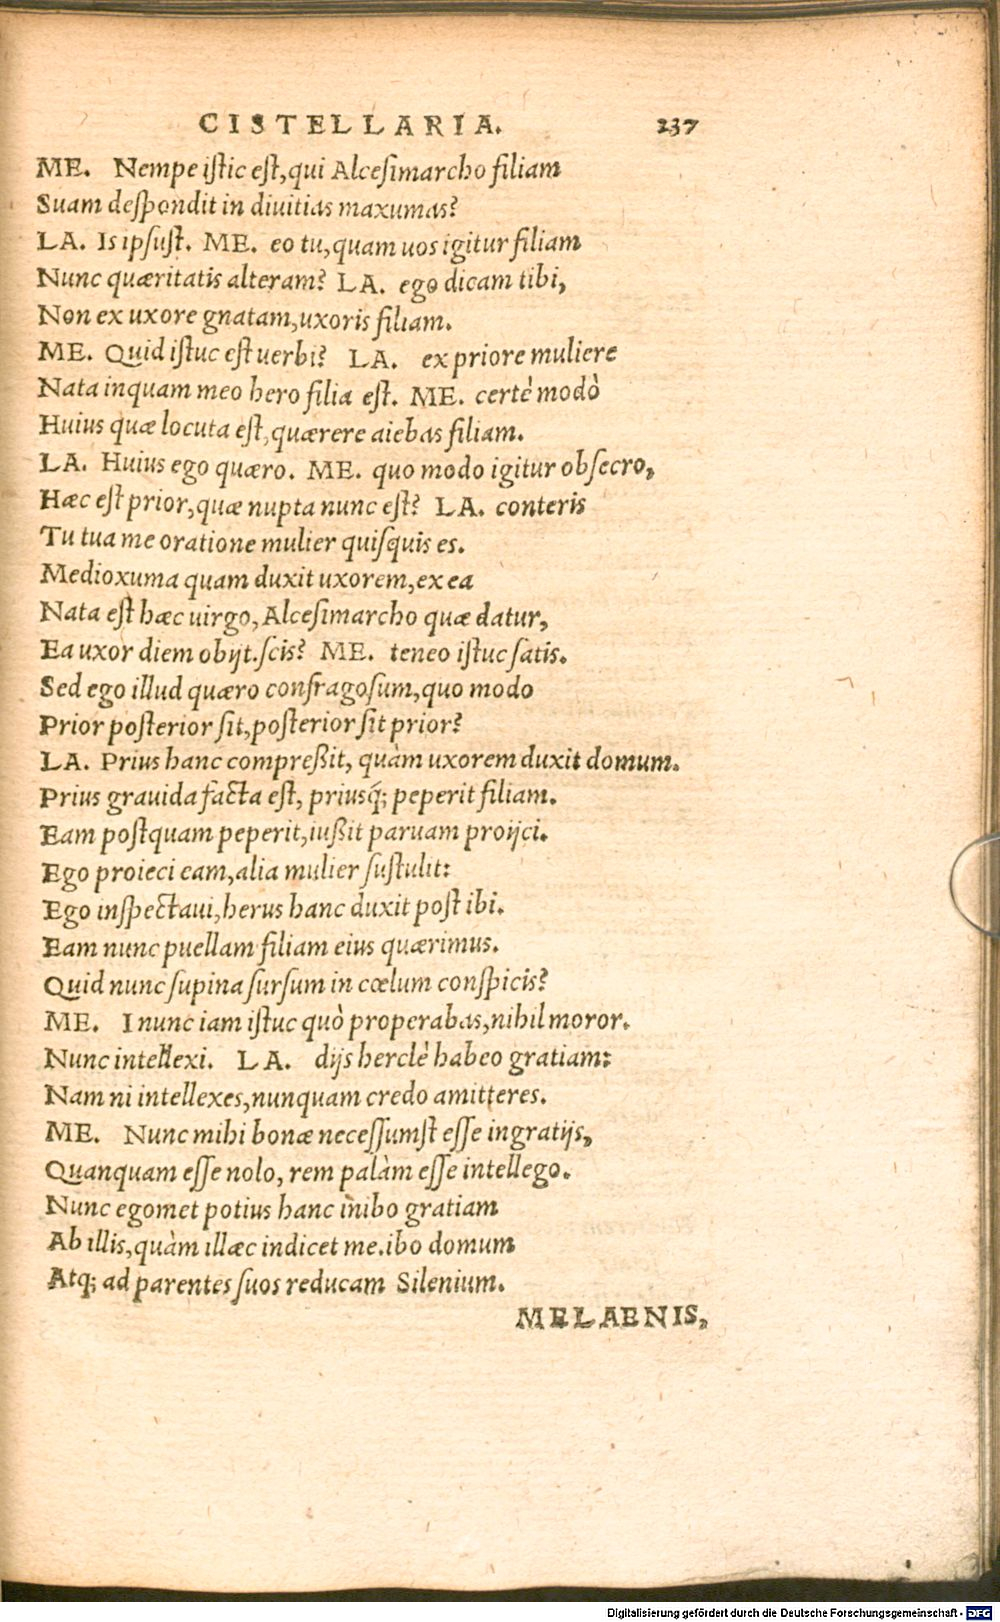 CISTELLARIA. 237
ME. Nempe iſtic eſt, qui Alceſimarcho filiam
Suam deſpondit in diuitias maxumas?
LA. Is ipſuſt. ME. eo tu, quam uos igitur filiam
Nunc quæritatis alteram? LA. ego dicam tibi,
Non ex uxore gnatam, uxoris filiam.
ME. Quid iſtuc eſt uerbi? LA. ex priore muliere
Nata inquam meo hero filia eſt. ME. certè modò
Huius quæ locuta eſt, quærere aiebas filiam.
LA. Huius ego quæro. ME. quo modo igitur obſecro,
Hæc eſt prior, quæ nupta nunc eſt? LA. conteris
Tu tua me oratione mulier quiſquis es.
Medioxuma quam duxit uxorem, ex ea
Nata eſt hæc uirgo, Alceſimarcho quæ datur,
Ea uxor diem obijt. ſcis? ME. teneo iſtuc ſatis.
Sed ego illud quæro confragoſum, quo modo
Prior poſterior ſit, poſterior ſit prior?
LA. Prius hanc compreßit, quàm uxorem duxit domum.
Prius grauida facta eſt, priusq́; peperit filiam.
Eam poſtquam peperit, iußit paruam proijci.
Ego proieci eam, alia mulier ſuſtulit:
Ego inſpectaui, herus hanc duxit poſt ibi.
Eam nunc puellam filiam eius quærimus.
Quid nunc ſupina ſurſum in cœlum conſpicis?
ME. I nunc iam iſtuc quò properabas, nihil moror.
Nunc intellexi. LA. dijs herclè habeo gratiam:
Nam ni intellexes, nunquam credo amitteres.
ME. Nunc mihi bonæ neceſſumſt eſſe ingratijs,
Quanquam eſſe nolo, rem palàm eſſe intellego.
Nunc egomet potius hanc inibo gratiam
Ab illis, quàm illæc indicet me. ibo domum
Atq; ad parentes ſuos reducam Silenium.
MELAENIS,
Digitalisierung gefördert durch die Deutsche Forschungsgemeinschaft - DFG